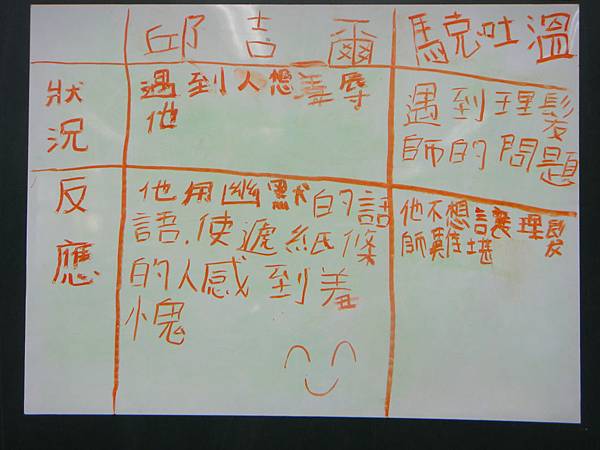 邱吉爾
馬克吐溫
狀況
遇到人想羞辱
他
遇到理髮
師的問題
反應
他用幽默的話
語,使遞紙條
的人感到羞
愧
他不想讓理髮
師難堪